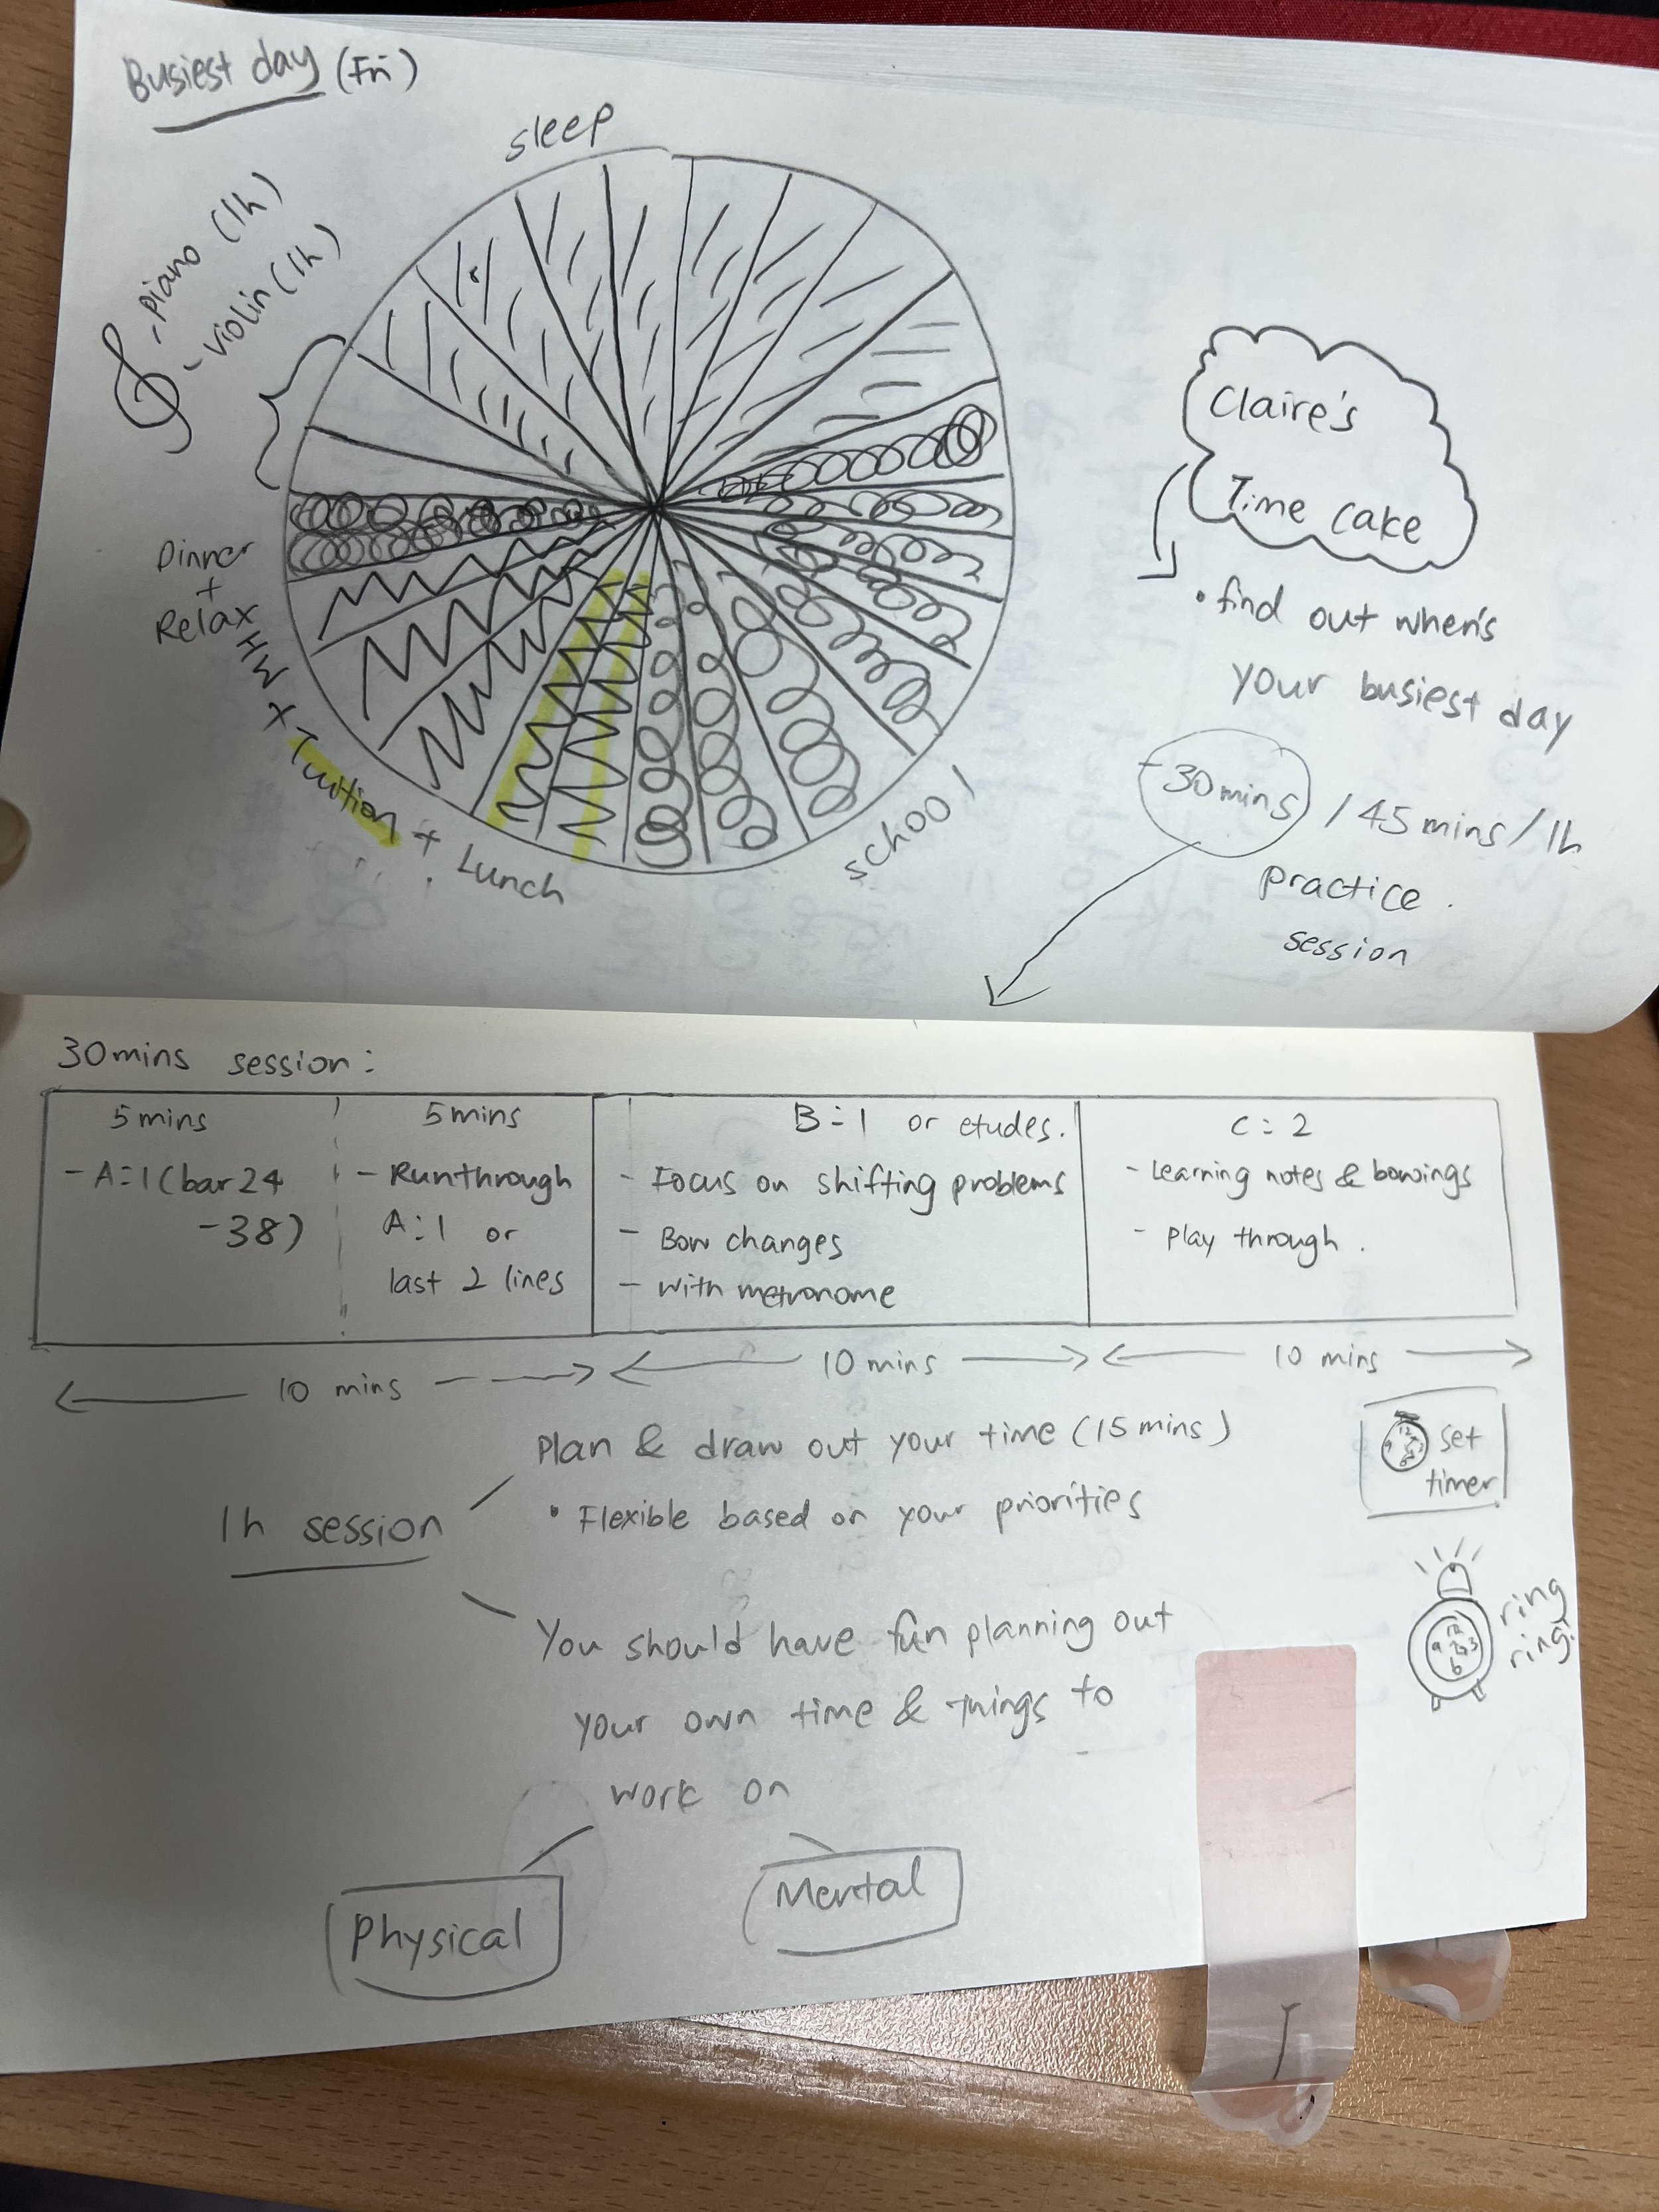 Busiest day (Fri)
sleep
- piano (1h)
- violin (1h)
Dinner
+
Relax
HW + Tuition + Lunch
school
Claire's
Time cake
• find out when's
your busiest day
- 30mins / 45 mins / 1h
practice.
session
30mins session:
5 mins
- A:1 (bar 24
-38)
5 mins
- Runthrough
A:1 or
last 2 lines
B:1 or etudes.
- Focus on shifting problems
- Bow changes
- with metronome
C:2
- Learning notes & bowings
- play through.
10 mins
10 mins
10 mins
1h session
Plan & draw out your time (15 mins)
• Flexible based on your priorities
set
timer
You should have fun planning out
your own time & things to
work on
ring
ring!
Physical
Mental